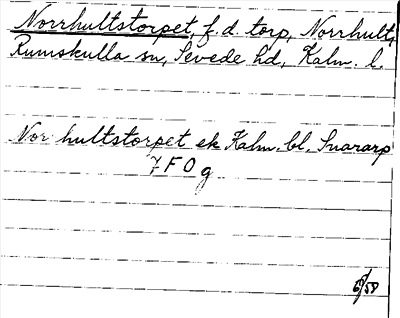 Norrhultstorpet, f.d. torp, Norrhult,
Rumskulla sn, Sevede hd, Kalm. l.
Nor hultstorpet ek Kalm. bl. Snararp
7 F 0 g